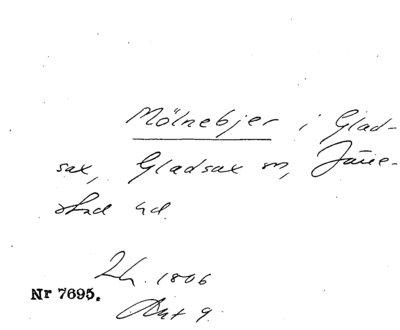 Mölnebjer i Glad-
sax, Gladsax sn, Järre-
stad hd.
Lh. 1806
Nr 7695.
Akt 9